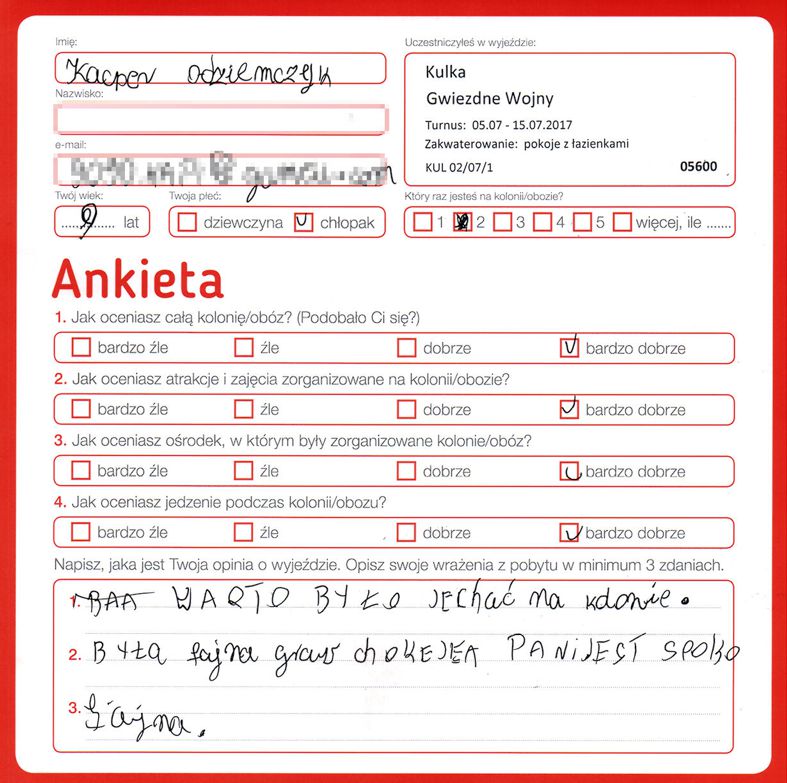 Imię:
Kacper Odziemczyk
Nazwisko:
e-mail:
Twój wiek:
9 lat
Twoja płeć:
dziewczyna chłopak
Uczestniczyłeś w wyjeździe:
Kulka
Gwiezdne Wojny
Turnus: 05.07 - 15.07.2017
Zakwaterowanie: pokoje z łazienkami
KUL 02/07/1 05600
Który raz jesteś na kolonii/obozie?
1 2 3 4 5 więcej, ile .......
Ankieta
1. Jak oceniasz całą kolonię/obóz? (Podobało Ci się?)
bardzo źle źle dobrze bardzo dobrze
2. Jak oceniasz atrakcje i zajęcia zorganizowane na kolonii/obozie?
bardzo źle źle dobrze bardzo dobrze
3. Jak oceniasz ośrodek, w którym były zorganizowane kolonie/obóz?
bardzo źle źle dobrze bardzo dobrze
4. Jak oceniasz jedzenie podczas kolonii/obozu?
bardzo źle źle dobrze bardzo dobrze
Napisz, jaka jest Twoja opinia o wyjeździe. Opisz swoje wrażenia z pobytu w minimum 3 zdaniach.
1. WARTO BYŁO JEChać na kolonie.
2. BYŁa fajna graw chOKEJEA PANiJEST SPOKO
3. fajna.